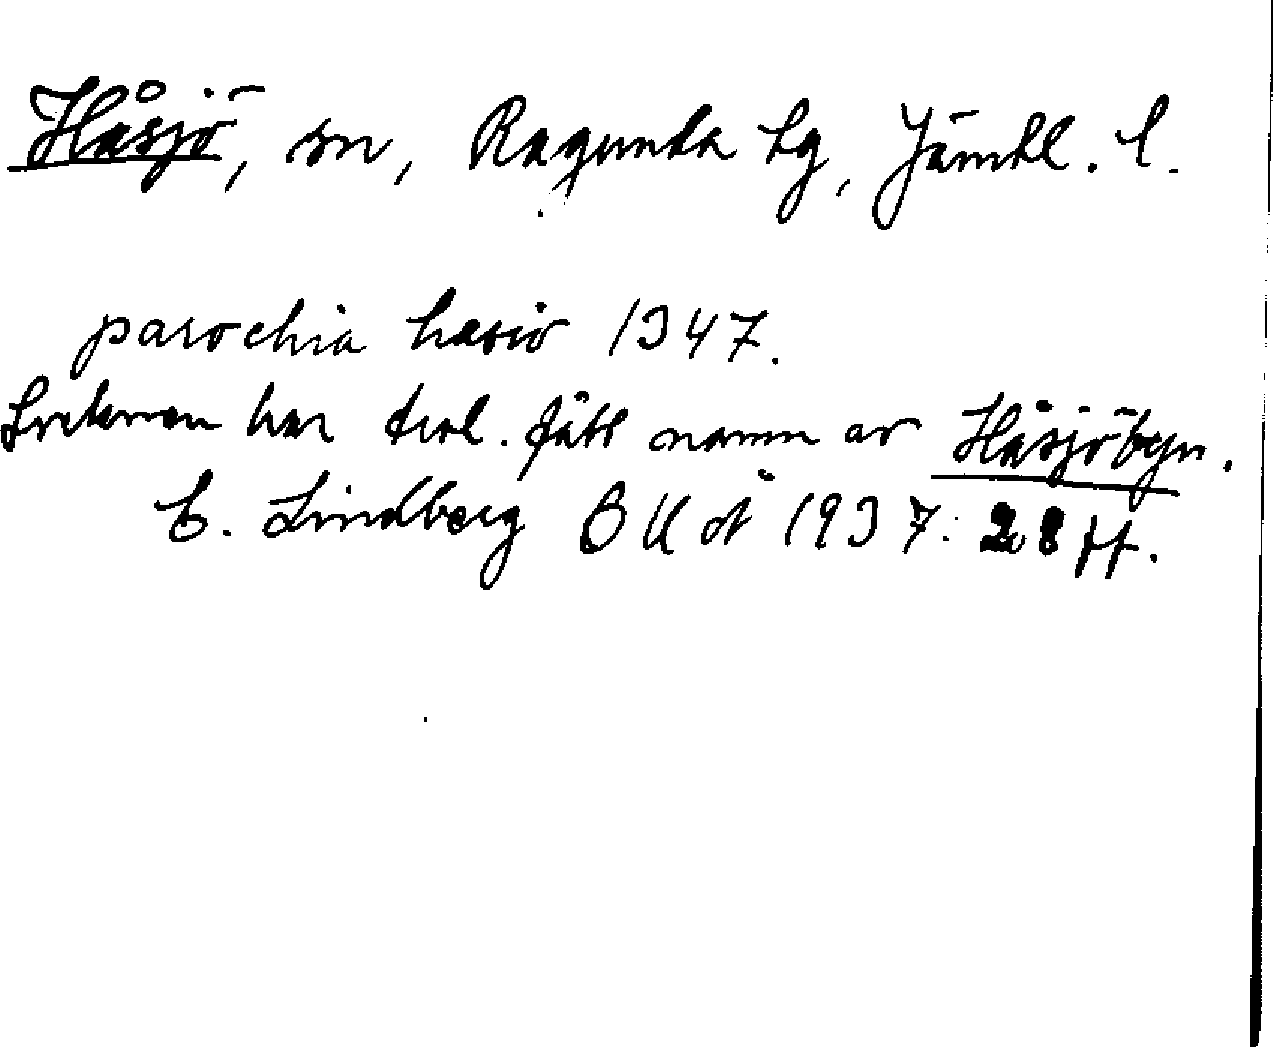 Håsjö, sn, Ragunda tg, Jämtl. l.
parochia hasio 1347.
Socknen har trol. fått namn av Håsjöbyn.
C. Lindberg 1937: 28 ff.